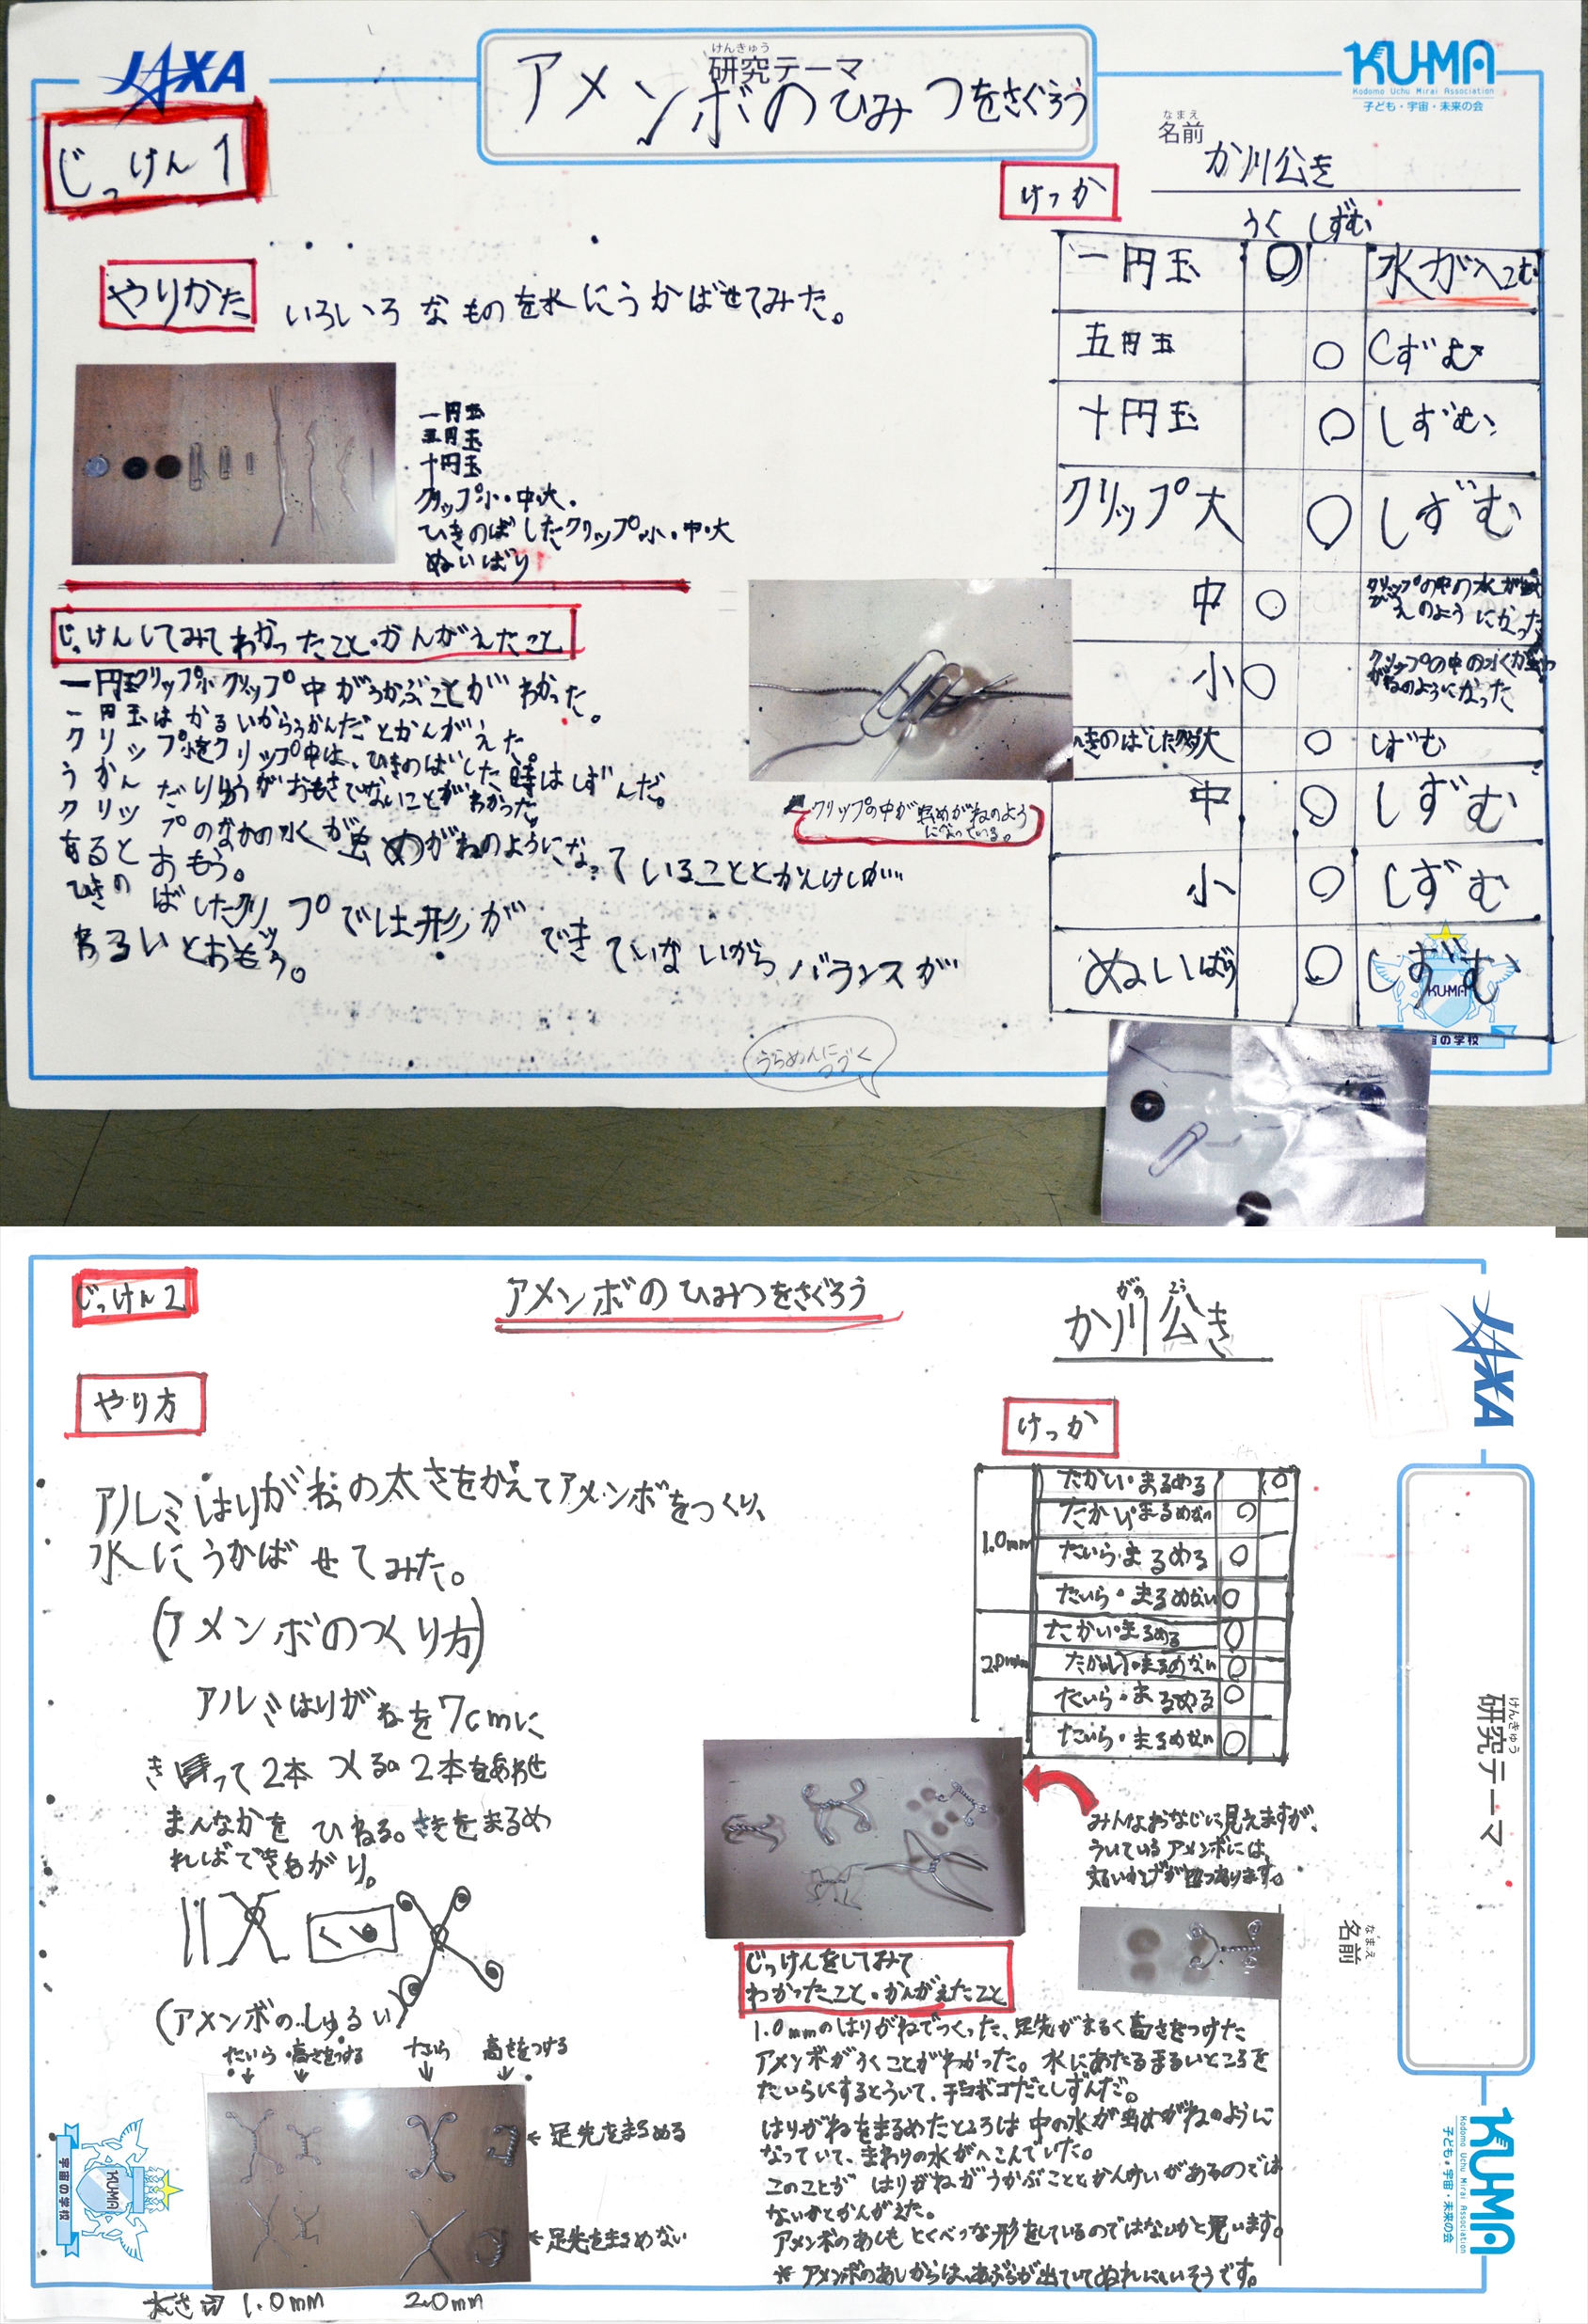 JAXA
けんきゅう
研究テーマ
アメンボのひみつをさぐろう
KU-MA
Kodomo Uchu Mirai Association
子ども・宇宙・未来の会
なまえ
名前
か川公き
じっけん1
やりかた
いろいろなものを水にうかばせてみた。
一円玉
五円玉
十円玉
クリップ小・中・大・
ひきのばしたクリップ小・中・大
ぬいばり
じっけんしてみてわかったこと・かんがえたこと
一円玉クリップ小クリップ中がうかぶことがわかった。
一円玉はかるいからうかんだとかんがえた
クリップ小をクリップ中は、ひきのばした時はしずんだ。
うかんだりゆうがおもさでないことがわかった。
クリップのなかの水が虫めがねのようになっていることとかんけいが
あるとおもう。
ひきのばしたクリップでは形ができていないからバランスが
わるいとおもう。
クリップの中が虫めがねのよう
になっている。
うらめんに
つづく
けっか
うく しずむ
一円玉 ○ 水がへこむ
五円玉 ○ しずむ
十円玉 ○ しずむ
クリップ大 ○ しずむ
中 ○ クリップの中の水が虫め
がねのようになった
小 ○ クリップの中の水が虫め
がねのようになった
ひきのばしたクリップ大 ○ しずむ
中 ○ しずむ
小 ○ しずむ
ぬいばり ○ しずむ
KU-MA
宙の学校
じっけん2
アメンボのひみつをさぐろう
がわ こう
か川公き
やり方
アルミはりがねの太さをかえてアメンボをつくり、
水にうかばせてみた。
(アメンボのつくり方)
アルミはりがねを7cmに
きって2本つくる。2本をあわせ
まんなかをひねる。さきをまるめ
ればできあがり。
(アメンボのしゅるい)
たいら・高さをつける たいら 高さをつする
←足先をまるめる
←足先をまるめない
太さ⇨ 1.0mm 2.0mm
けっか
1.0mm たかい・まるめる ○
たかい・まるめない ○
たいら・まるめる ○
たいら・まるめない ○
2.0mm たかい・まるめる ○
たかい・まるめない ○
たいら・まるめる ○
たいら・まるめない ○
みんなおなじに見えますが、
ういているアメンボには、
丸いかげが四つあります。
じっけんをしてみて
わかったこと・かんがえたこと
1.0mmのはりがねでつくった、足先がまるく高さをつけた
アメンボがうくことがわかった。水にあたるまるいところを
たいらにするとういて、デコボコだとしずんだ。
はりがねをまるめたところは中の水が虫めがねのように
なっていて、まわりの水がへこんでいた。
このことが はりがねがうかぶこととかんけいがあるのでは
ないかとかんがえた。
アメンボのあしもとくべつな形をしているのではないかと思います。
※アメンボのあしからは、あぶらが出ていてぬれにくいそうです。
JAXA
けんきゅう
研究テーマ
なまえ
名前
KU-MA
Kodomo Uchu Mirai Association
子ども・宇宙・未来の会
KU-MA
宇宙の学校